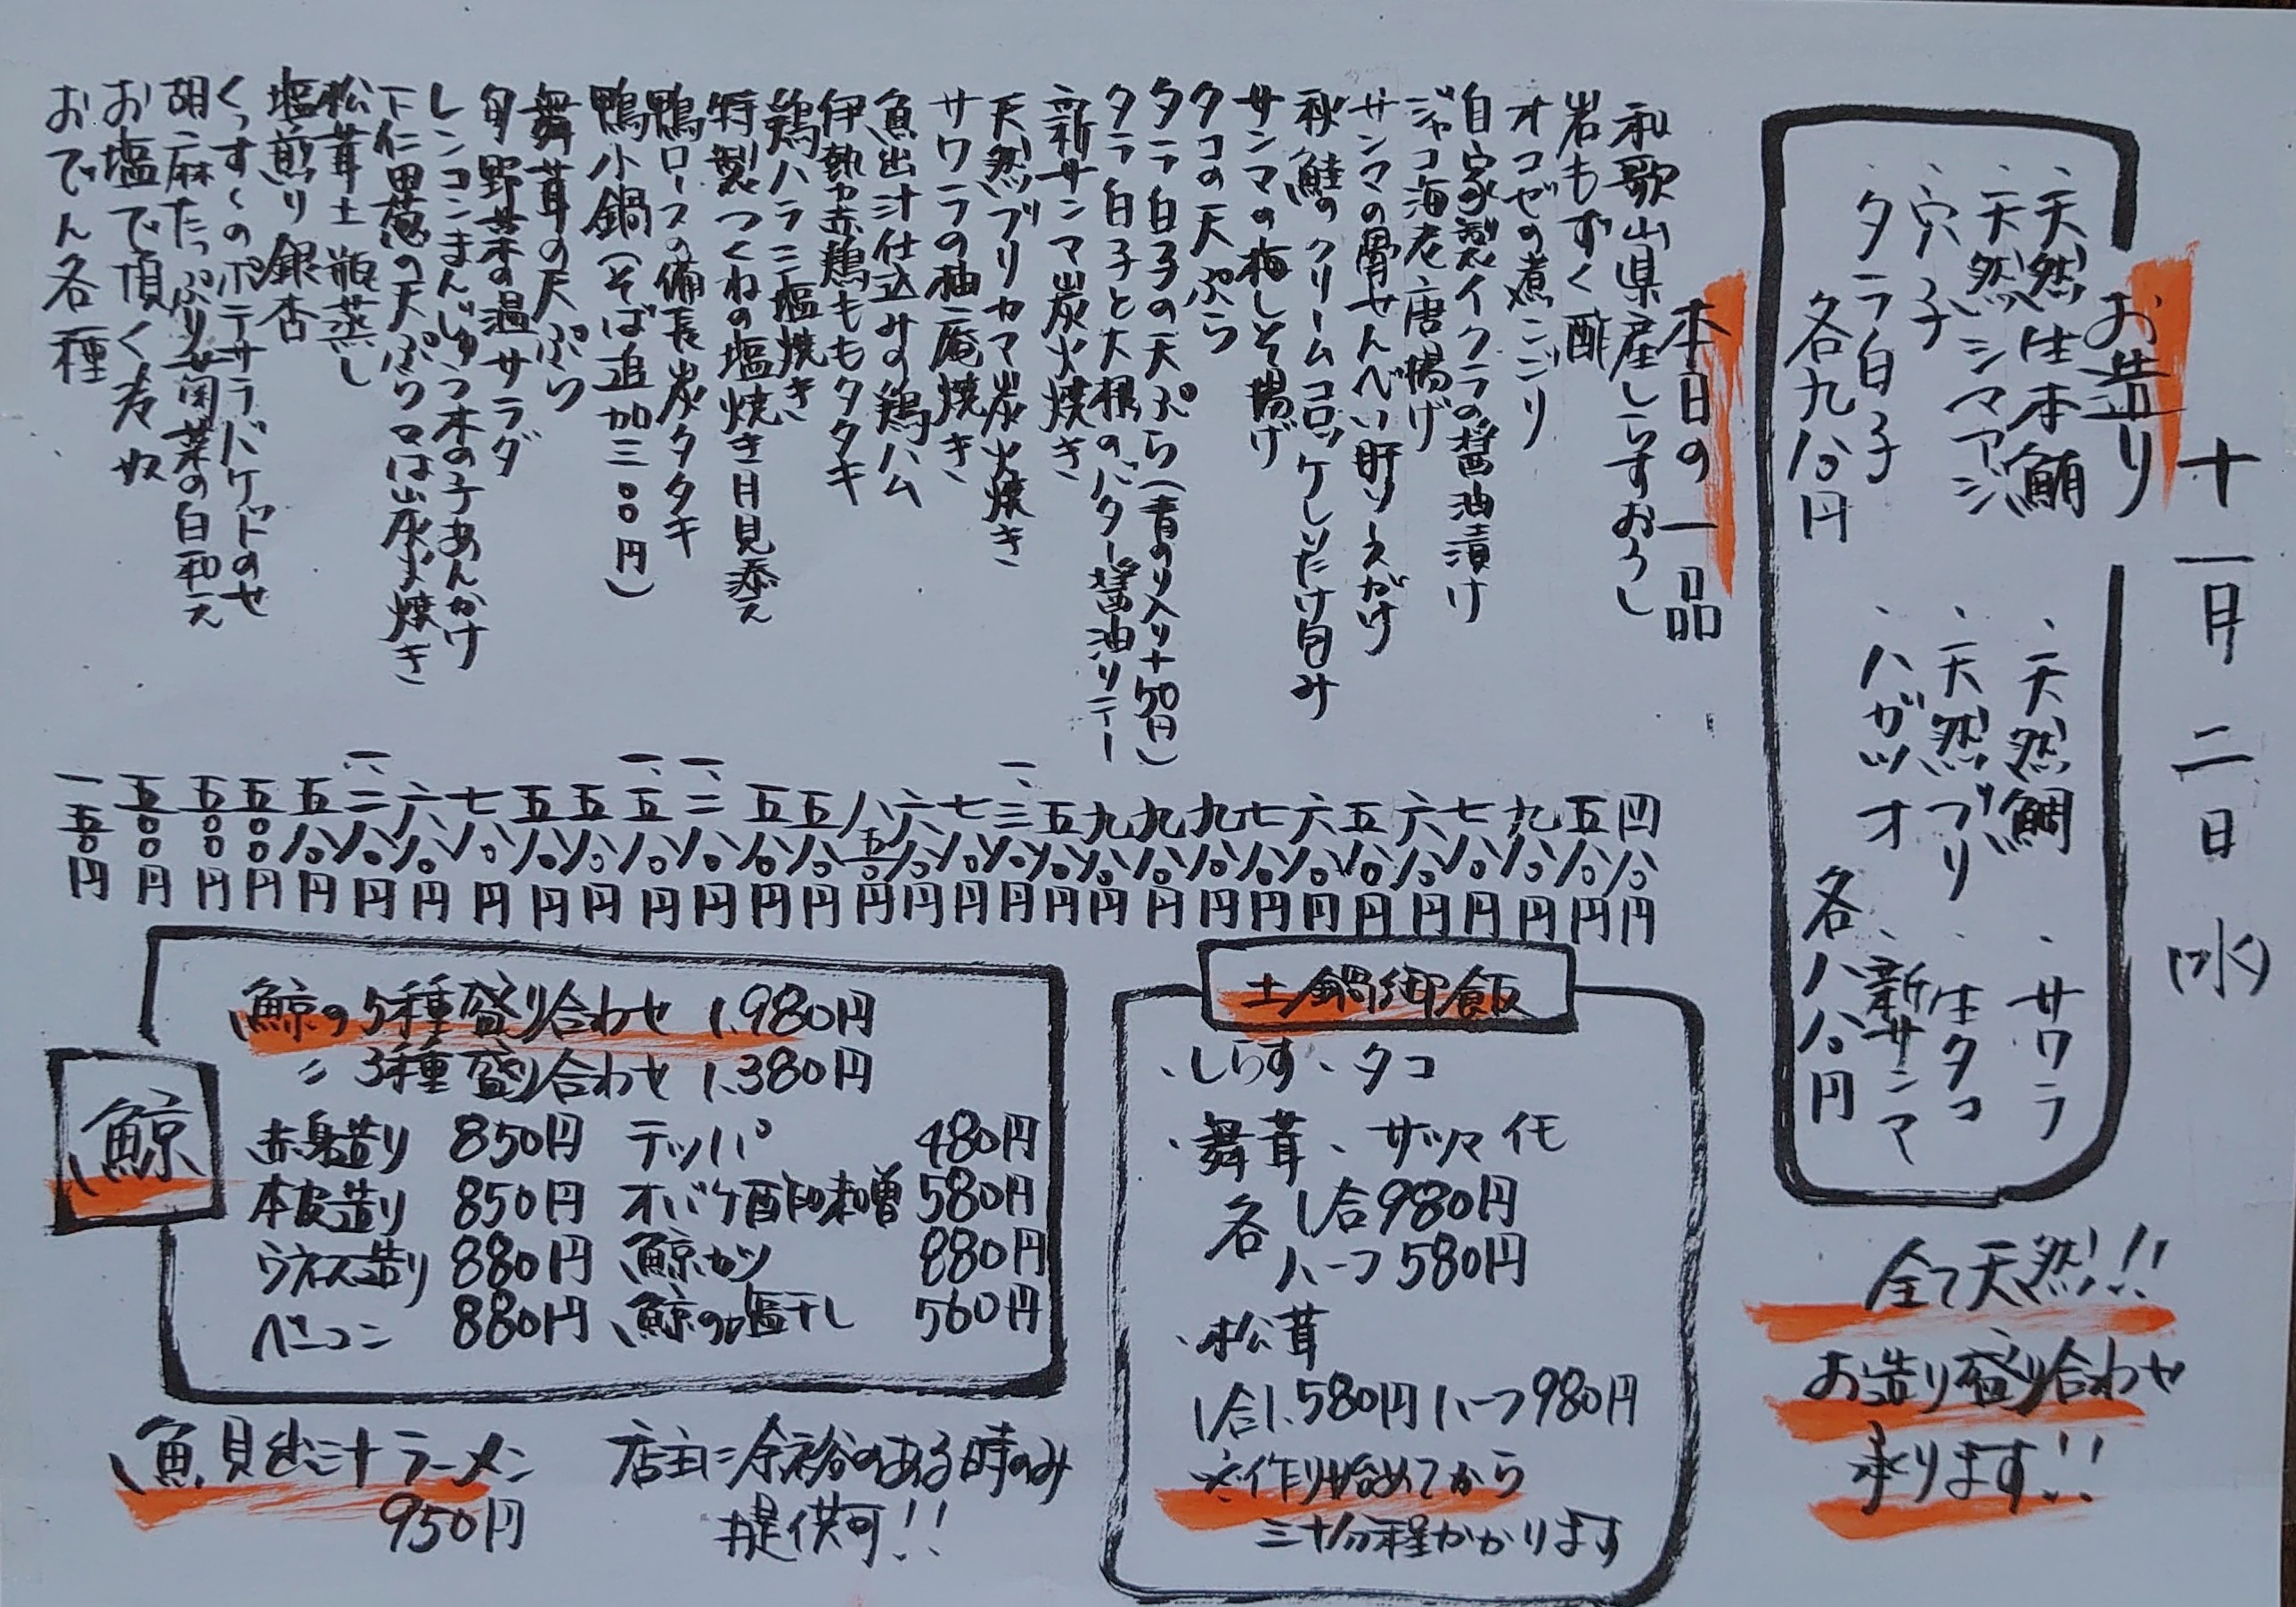 十一月二日(水)
お造り
、天然生本鮪
、天然シマアジ
、穴子
、タラ白子
各九八〇円
、天然鯛
、天然ブリ
、ハガツオ
、サワラ
、生タコ
、新サンマ
各八八〇円
全て天然!!
お造り盛り合わせ
承ります!!
本日の一品
和歌山県産しらすおろし 四八〇円
岩もずく酢 五八〇円
オコゼの煮こごり 九八〇円
自家製イクラの醤油漬け 七八〇円
ジャコ海老唐揚げ 六八〇円
サンマの骨せんべい肝ソースがけ 五八〇円
秋鮭のクリームコロッケしいたけ包み 六八〇円
サンマの梅しそ揚げ 七八〇円
タコの天ぷら 九八〇円
タラ白子の天ぷら(青のり入り+50円) 九八〇円
タラ白子と大根のバター醤油ソテー 九八〇円
新サンマ炭火焼き 五八〇円
天然ブリカマ炭火焼き 一、三八〇円
サワラの柚庵焼き 七八〇円
魚出汁仕込みの鶏ハム 六八〇円
伊勢赤鶏ももタタキ 八五〇円
鶏ハラミ塩焼き 五八〇円
特製つくねの塩焼き月見添え 五八〇円
鴨ロースの備長炭タタキ 一、二八〇円
鴨小鍋(そば追加三〇〇円) 一、五八〇円
舞茸の天ぷら 五八〇円
旬野菜の温サラダ 五八〇円
レンコンまんじゅう木の子あんかけ 七八〇円
下仁田葱の天ぷら又は炭火焼き 六八〇円
松茸土瓶蒸し 一、二八〇円
塩煎り銀杏 五八〇円
くっす〜のポテサラバケットのせ 五〇〇円
胡麻たっぷり春菊の白和え 五〇〇円
お塩で頂く冷奴 五〇〇円
おでん各種 一五〇円
土鍋御飯
、しらす、タコ
、舞茸、サツマイモ
各 1合980円
ハーフ580円
、松茸
1合1.580円ハーフ980円
※作り始めてから
三十分程かかります
鯨
鯨の5種盛り合わせ 1.980円
〃 3種盛り合わせ 1.380円
赤身造り 850円 テッパ 480円
本皮造り 850円 オバケ酢味噌 580円
ウネス造り 880円 鯨カツ 880円
ベーコン 880円 鯨の塩干し 560円
魚貝出汁ラーメン
950円
店主に余裕のある時のみ
提供可!!